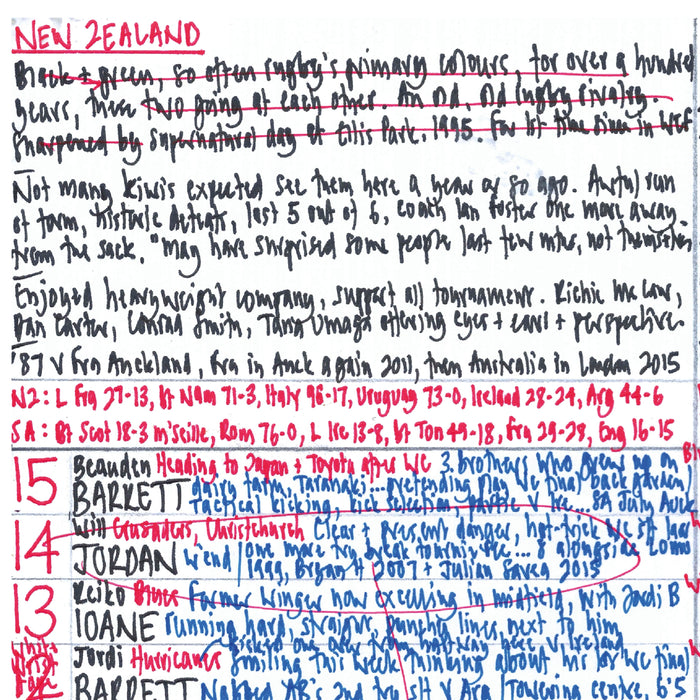 NEW ZEALAND
Black + green, so often rugby's primary colours, for over a hundred
years, these two going at each other. An old, old rugby rivalry.
Sharpened by supernatural day at Ellis Park, 1995. For 1st time since in WCF
Not many kiwis expected see them here a year or so ago. Awful run
of form, historic defeats, lost 5 out of 6, coach Ian Foster one more away
from the sack. "May have surprised some people last few mths, not themselves
Enjoyed heavyweight company, support all tournament. Richie McCaw,
Dan Carter, Conrad Smith, Tana Umaga offering eyes + ears + perspective
'87 v Fra Auckland, Fra in Auck again 2011, then Australia in London 2015
NZ: L Fra 27-13, bt Nam 71-3, Italy 96-17, Uruguay 73-0, Ireland 28-24, Arg 44-6
SA: Bt Scot 18-3 m'seille, Rom 76-0, L Ire 13-8, bt Ton 49-18, Fra 29-28, Eng 16-15
15 Beauden BARRETT Heading to Japan + Toyota after WC 3 brothers who grew up on
dairy farm, Taranaki... pretending play WC final back garden
Tactical kicking, kick selection, v Ire... SA July Auck
14 Will JORDAN Crusaders, Christchurch Clear + present danger, hat-trick WC s/f last
w'end / one more try break tourn rec... 8 alongside Lomu
1999, Bryan H 2007 + Julian Savea 2015
13 Reiko IOANE Blues Former winger now excelling in midfield, with Jordi B
running hard, straight, punchy lines, next to him
Kicked one over from halfway v Ireland
Jordi BARRETT Hurricanes Smiling this week thinking about his WC final
Nabbed AB's 2nd try s/f v Arg / Towering centre 6'5